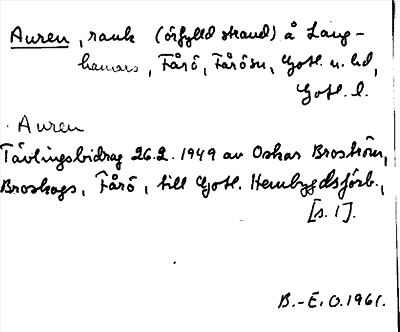 Auren, rauk (örfylld strand) å Lang-
hamars, Fårö, Fårösu, Gotl. n. hd,
Gotl. l.
Auren
Tävlingsbidrag 26.2.1949 av Oskar Broström,
Broskogs, Fårö, till Gotl. Hembygdsförb.,
[s. 1].
B.-E. O. 1961.